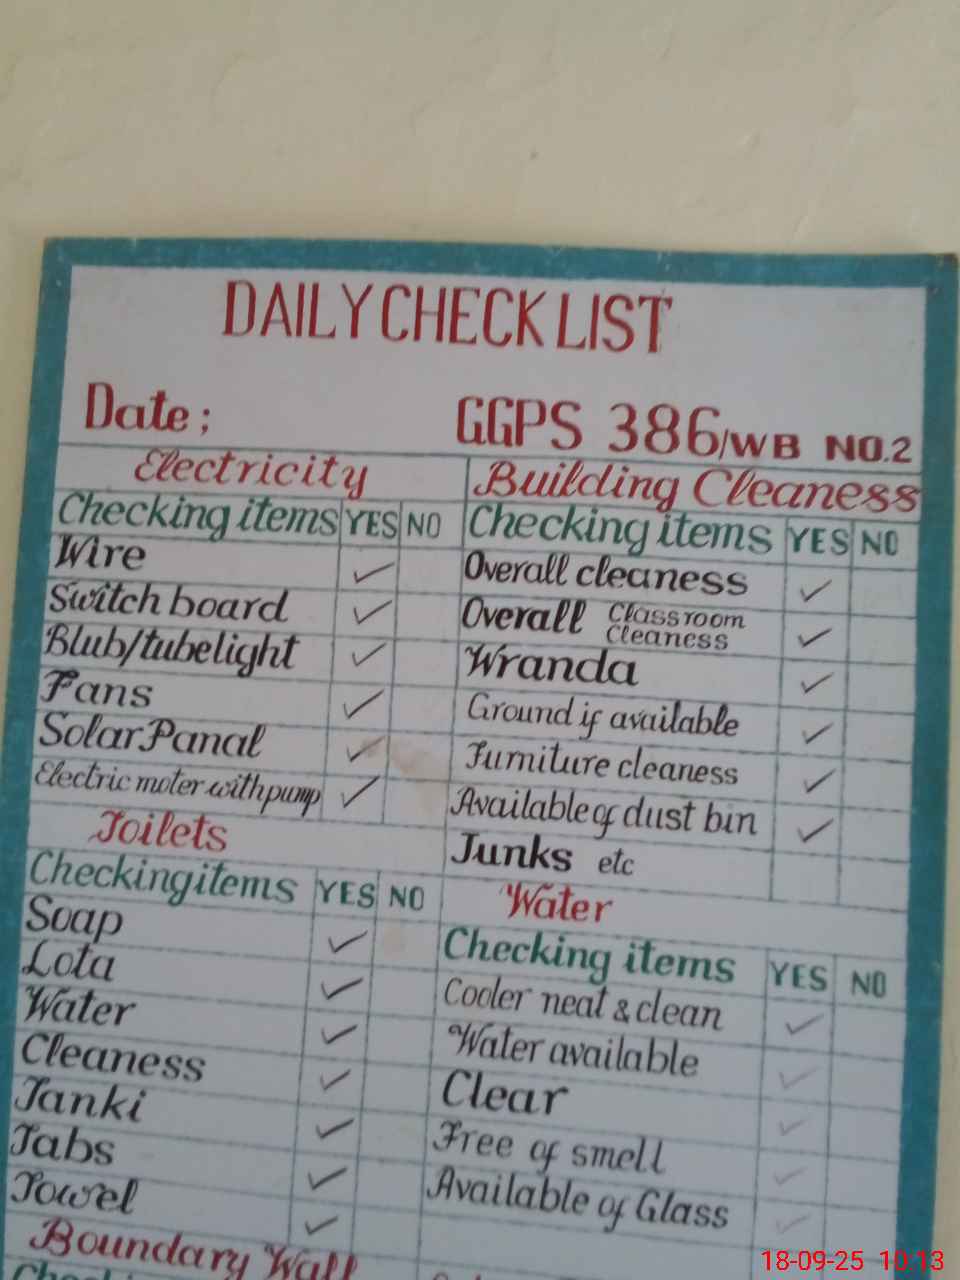 DAILY CHECK LIST
Date ; GGPS 386/WB NO.2
Electricity
Checking items YES NO
Wire ✓
Switch board ✓
Blub/tubelight ✓
Fans ✓
Solar Panal ✓
Electric moter with pump ✓
Toilets
Checking items YES NO
Soap ✓
Lota ✓
Water ✓
Cleaness ✓
Tanki ✓
Tabs ✓
Towel ✓
Boundary Wall
Building Cleaness
Checking items YES NO
Overall cleaness ✓
Overall Classroom Cleaness ✓
Wranda ✓
Ground if available ✓
Furniture cleaness ✓
Available of dust bin ✓
Junks etc
Water
Checking items YES NO
Cooler neat & clean ✓
Water available ✓
Clear ✓
Free of smell ✓
Available of Glass ✓
18-09-25 10:13